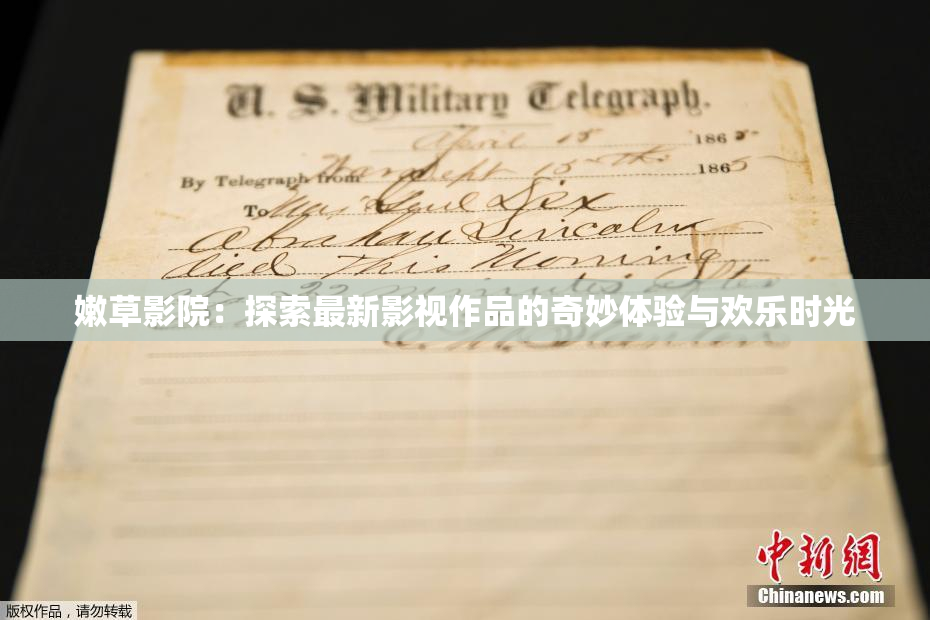 U. S. Military Telegraph.
April 15 1865
By Telegraph from War Dept 15th 1865
To Maj Genl Dix
Abraham Lincoln
died This Morning
at 22 minutes after
嫩草影院：探索最新影视作品的奇妙体验与欢乐时光
E. M. Stanton
中新网
Chinanews.com
版权作品，请勿转载